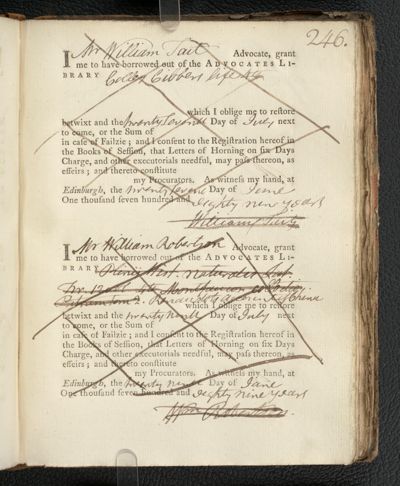 246.
I Mr William Tait Advocate, grant
me to have borrowed out of the ADVOCATES LI-
BRARY Colley Cibbers life 4to
which I oblige me to restore
betwixt and the twenty Seventh Day of July next
to come, or the Sum of
in case of Failzie; and I consent to the Registration hereof in
the Books of Session, that Letters of Horning on six Days
Charge, and other executorials needful, may pass thereon, as
effeirs; and thereto constitute
my Procurators. As witness my hand, at
Edinburgh, the twenty Seventh Day of June
One thousand seven hundred and eighty nine years
William Tait
I Mr William Robertson Advocate, grant
me to have borrowed out of the ADVOCATES LI-
BRARY Plinij Hist. Naturalis
which I oblige me to restore
betwixt and the twenty ninth Day of July next
to come, or the Sum of
in case of Failzie; and I consent to the Registration hereof in
the Books of Session, that Letters of Horning on six Days
Charge, and other executorials needful, may pass thereon, as
effeirs; and thereto constitute
my Procurators. As witness my hand, at
Edinburgh, the twenty ninth Day of June
One thousand seven hundred and eighty nine years
Robertson